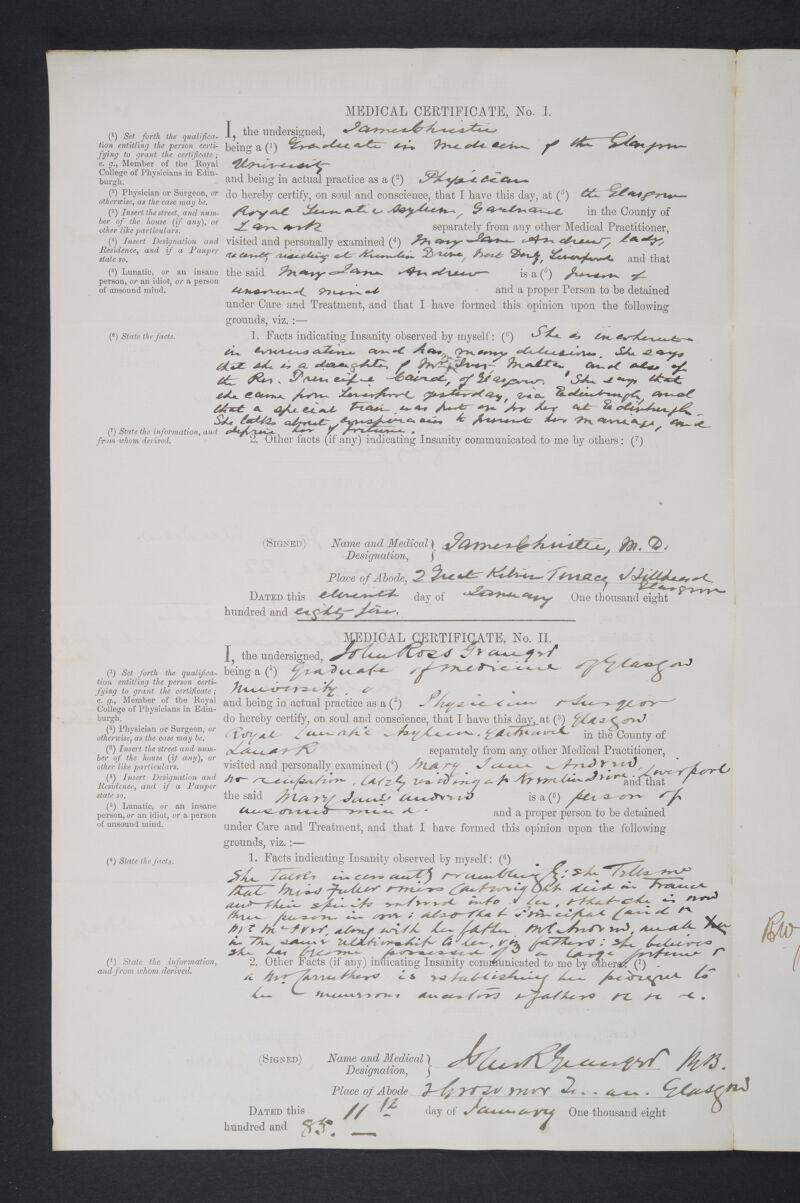 MEDICAL CERTIFICATE, No. I.
(¹) Set forth the qualifica-
tion entitling the person certi-
fying to grant the certificate;
e. g., Member of the Royal
College of Physicians in Edin-
burgh.
(²) Physician or Surgeon, or
otherwise, as the case may be.
(³) Insert the street, and num-
ber of the house (if any), or
other like particulars.
(⁴) Insert Designation and
Residence, and if a Pauper
state so.
(⁵) Lunatic, or an insane
person, or an idiot, or a person
of unsound mind.
I, the undersigned, James Christie
being a (¹) Graduate in Medicine of the Glasgow
University
and being in actual practice as a (²) Physician
do hereby certify, on soul and conscience, that I have this day, at (³) the Glasgow
Royal Lunatic Asylum, Gartnavel in the County of
Lanark separately from any other Medical Practitioner,
visited and personally examined (⁴) Mary Jane Andrew, lady,
recently residing at Drive, West Derby, Liverpool and that
the said Mary Jane Andrew is a (⁵) person of
unsound mind and a proper Person to be detained
under Care and Treatment, and that I have formed this opinion upon the following
grounds, viz. :—
(⁶) State the facts.
1. Facts indicating Insanity observed by myself: (⁶) She is incoherent
in conversation and has many delusions. She says
that she is a daughter of and also of
the Rev. Principal Caird, of Glasgow. She says that
she came from Liverpool yesterday, via Edinburgh, and
that a special train was put on for her at Edinburgh.
She talks about conspiracies to prevent her marriage, and
deprive her of fortune.
(⁷) State the information, and
from whom derived.
2. Other facts (if any) indicating Insanity communicated to me by others: (⁷)
(SIGNED) Name and Medical
Designation, } James Christie, M. D.
Place of Abode, 2 Great Kelvin Terrace, Hillhead
Glasgow
DATED this eleventh day of January One thousand eight
hundred and eighty five.
MEDICAL CERTIFICATE, No. II.
(¹) Set forth the qualifica-
tion entitling the person certi-
fying to grant the certificate;
e. g., Member of the Royal
College of Physicians in Edin-
burgh.
(²) Physician or Surgeon, or
otherwise, as the case may be.
(³) Insert the street and num-
ber of the house (if any), or
other like particulars.
(⁴) Insert Designation and
Residence, and if a Pauper
state so.
(⁵) Lunatic, or an insane
person, or an idiot, or a person
of unsound mind.
I, the undersigned, John Ross Granger
being a (¹) Graduate of medicine of Glasgow
University.
and being in actual practice as a (²) Physician & Surgeon
do hereby certify, on soul and conscience, that I have this day, at (³) Glasgow
Royal Lunatic Asylum. Gartnavel in the County of
Lanark separately from any other Medical Practitioner,
visited and personally examined (⁴) Mary Jane Andrew,
no occupation, lately residing at Drive. Liverpool
and that
the said Mary Jane Andrew is a (⁵) person of
unsound mind. and a proper person to be detained
under Care and Treatment, and that I have formed this opinion upon the following
grounds, viz. :—
(⁶) State the facts.
1. Facts indicating Insanity observed by myself: (⁶)
She talks incessantly & ramblingly: she tells me
that Miss Fuller & Miss Cartwright died in France
and their spirits entered into her, & that she is now
three persons in one: also that Principal Caird &
Mr McIver, along with her father, Mr Andrew, are all
in the same relationship to her, viz fathers: she believes
she has become possessed of a large fortune &
(⁷) State the information,
and from whom derived.
2. Other Facts (if any) indicating Insanity communicated to me by others: (⁷)
a Mr Carruthers is establishing her pedigree to
her numerous ancestors & fathers &c &c &c.
(SIGNED) Name and Medical
Designation, } John R Granger M.B.
Place of Abode 2 Grosvenor Glasgow
DATED this 11th day of January One thousand eight
hundred and 85.